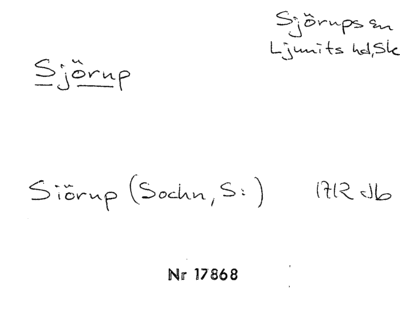 Sjörups sn
Ljunits hd, Sk
Sjörup
Siörup (Sochn, S:) 1712 db
Nr 17868